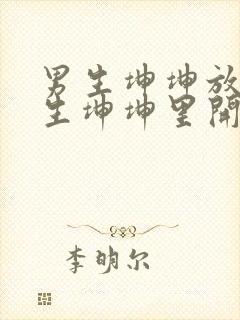 男生坤坤放
生坤坤里開
李明尔